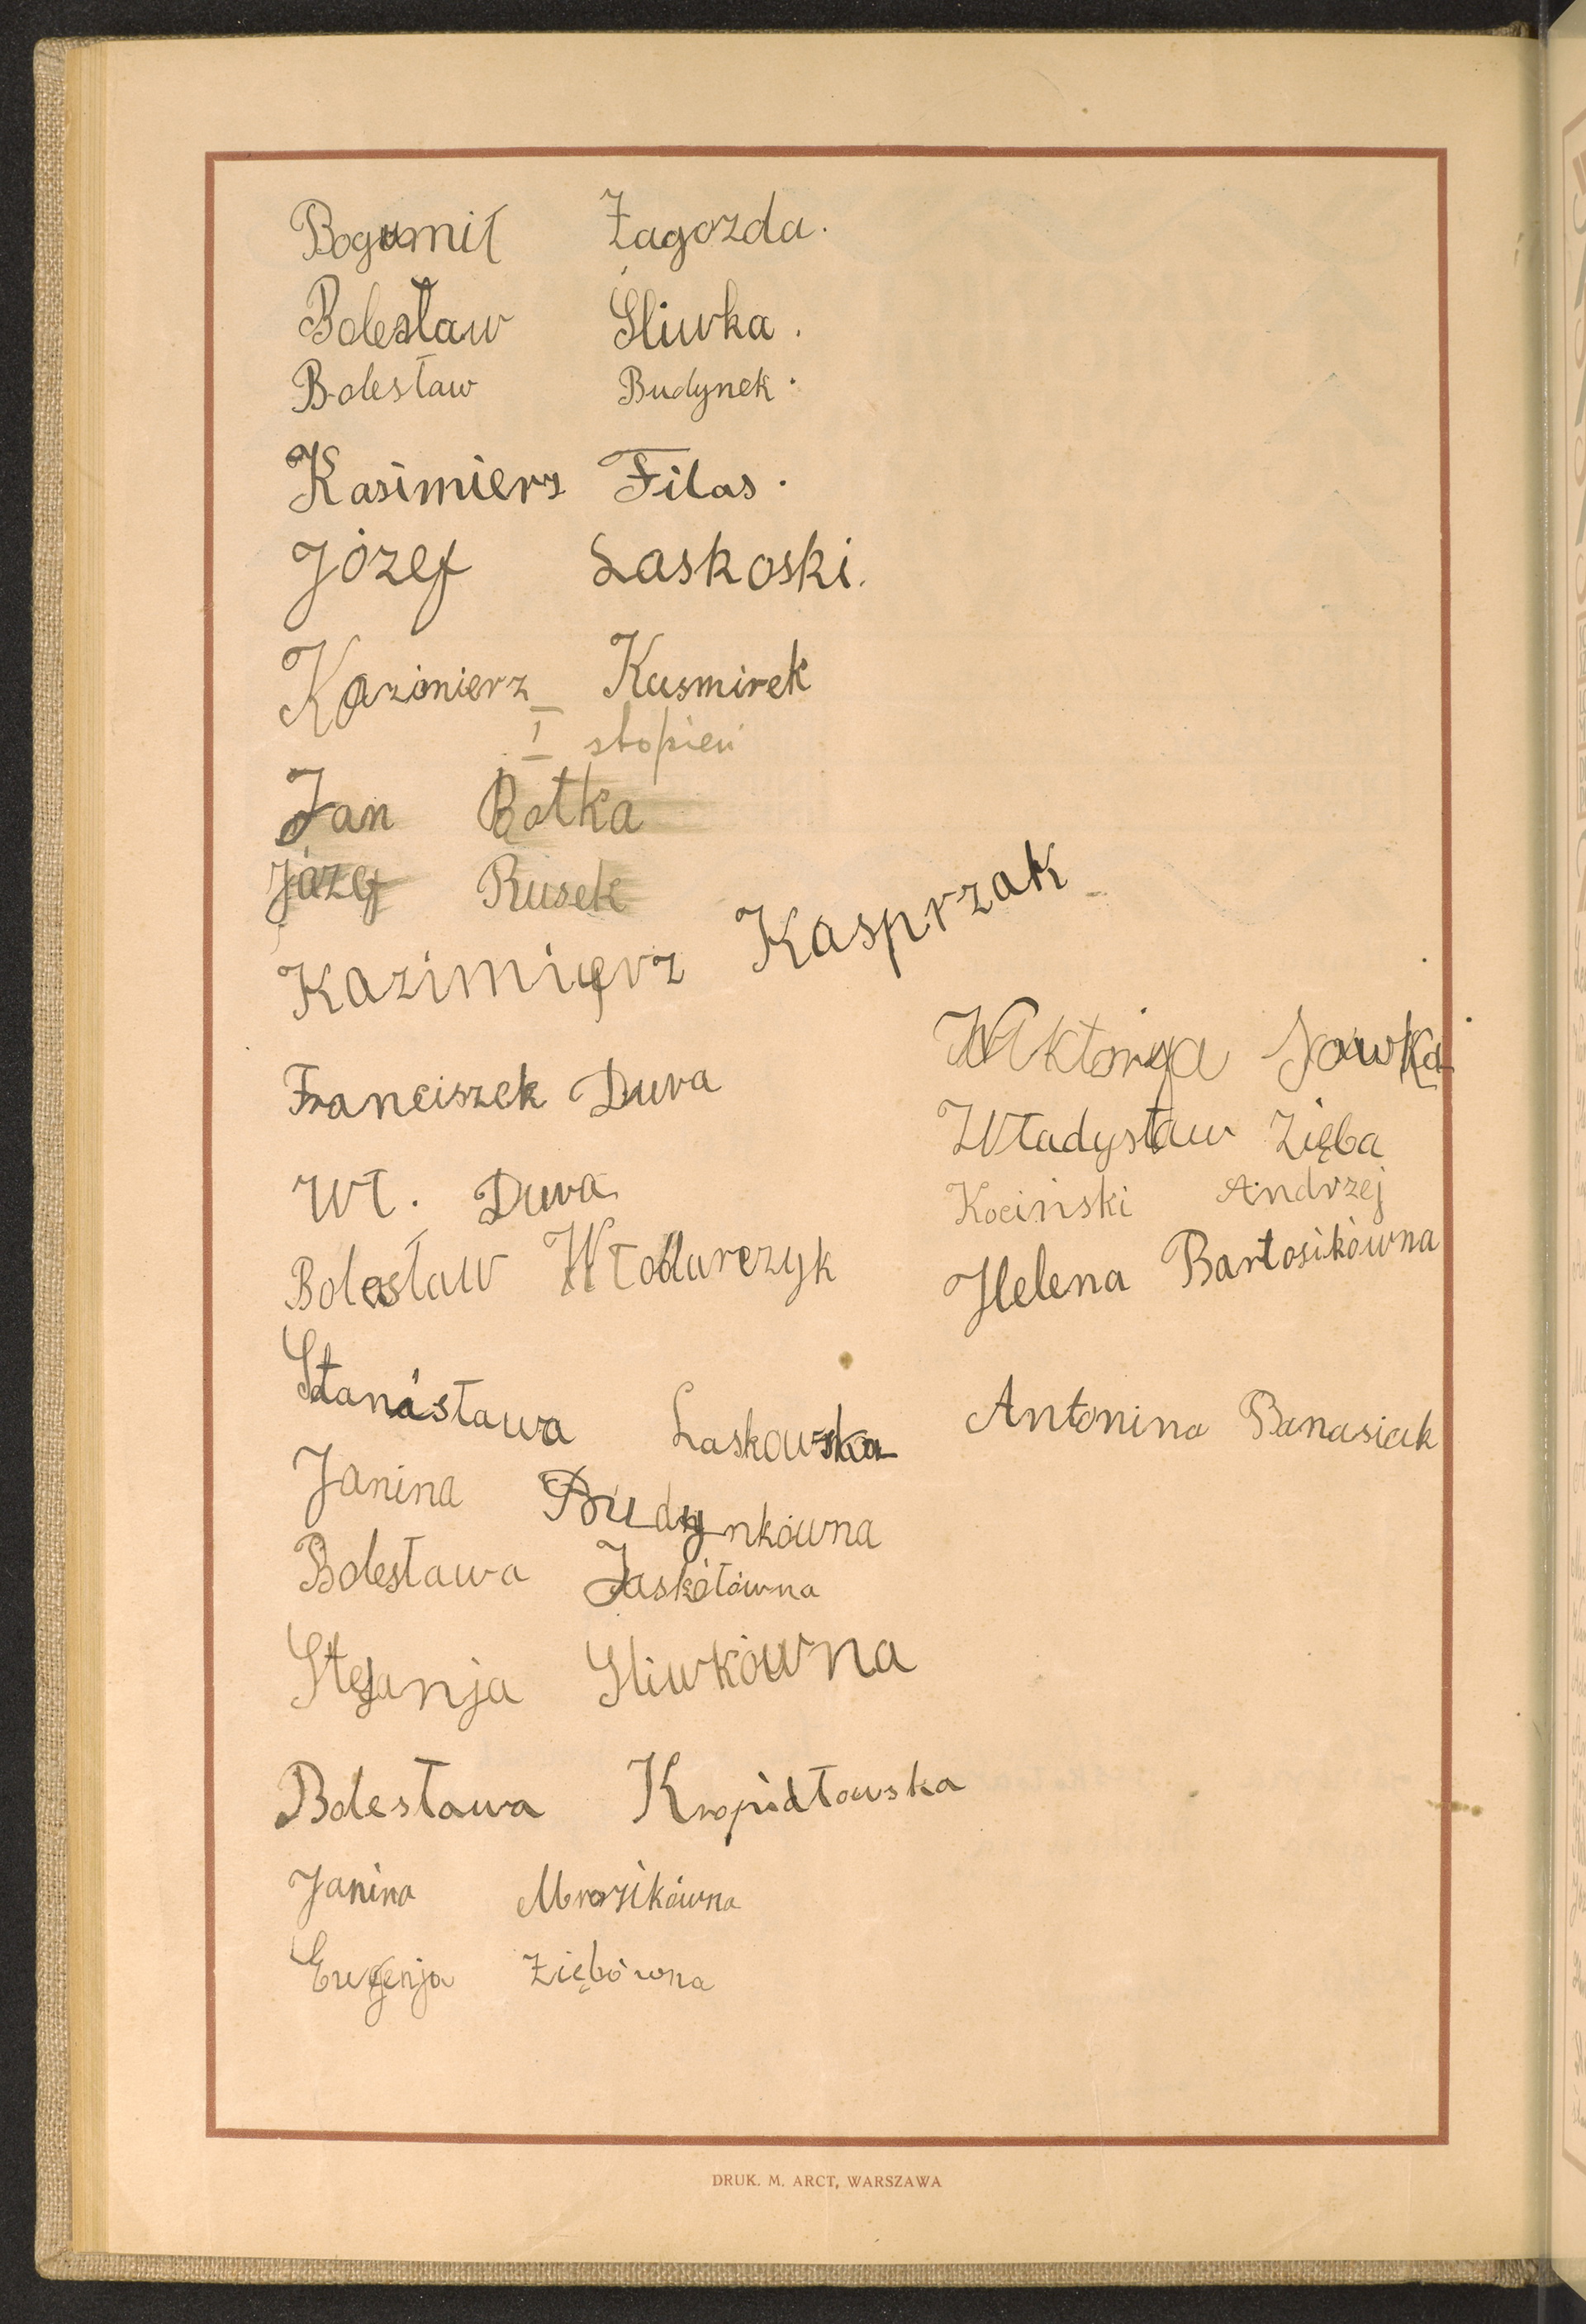 Bogumił Żagozda.
Bolesław Śliwka.
Bolesław Budynek.
Kasimierz Filas.
Józef Laskoski.
Kazimierz Kusmirek
I stopień
Jan Botka
Józef Rusek
Kazimierz Kasprzak
Franciszek Dura
Wł. Duva
Bolesław Włodarczyk
Stanisława Laskowska
Janina Budynkówna
Bolesława Jaskółówna
Stefanja Sliwkówna
Bolesława Kropidłowska
Janina Mrozikówna
Eugenja Ziębówna
Wiktorja Sowka
Władysław Zięba
Kociński Andrzej
Helena Bartosikówna
Antonina Banasiak
DRUK. M. ARCT, WARSZAWA